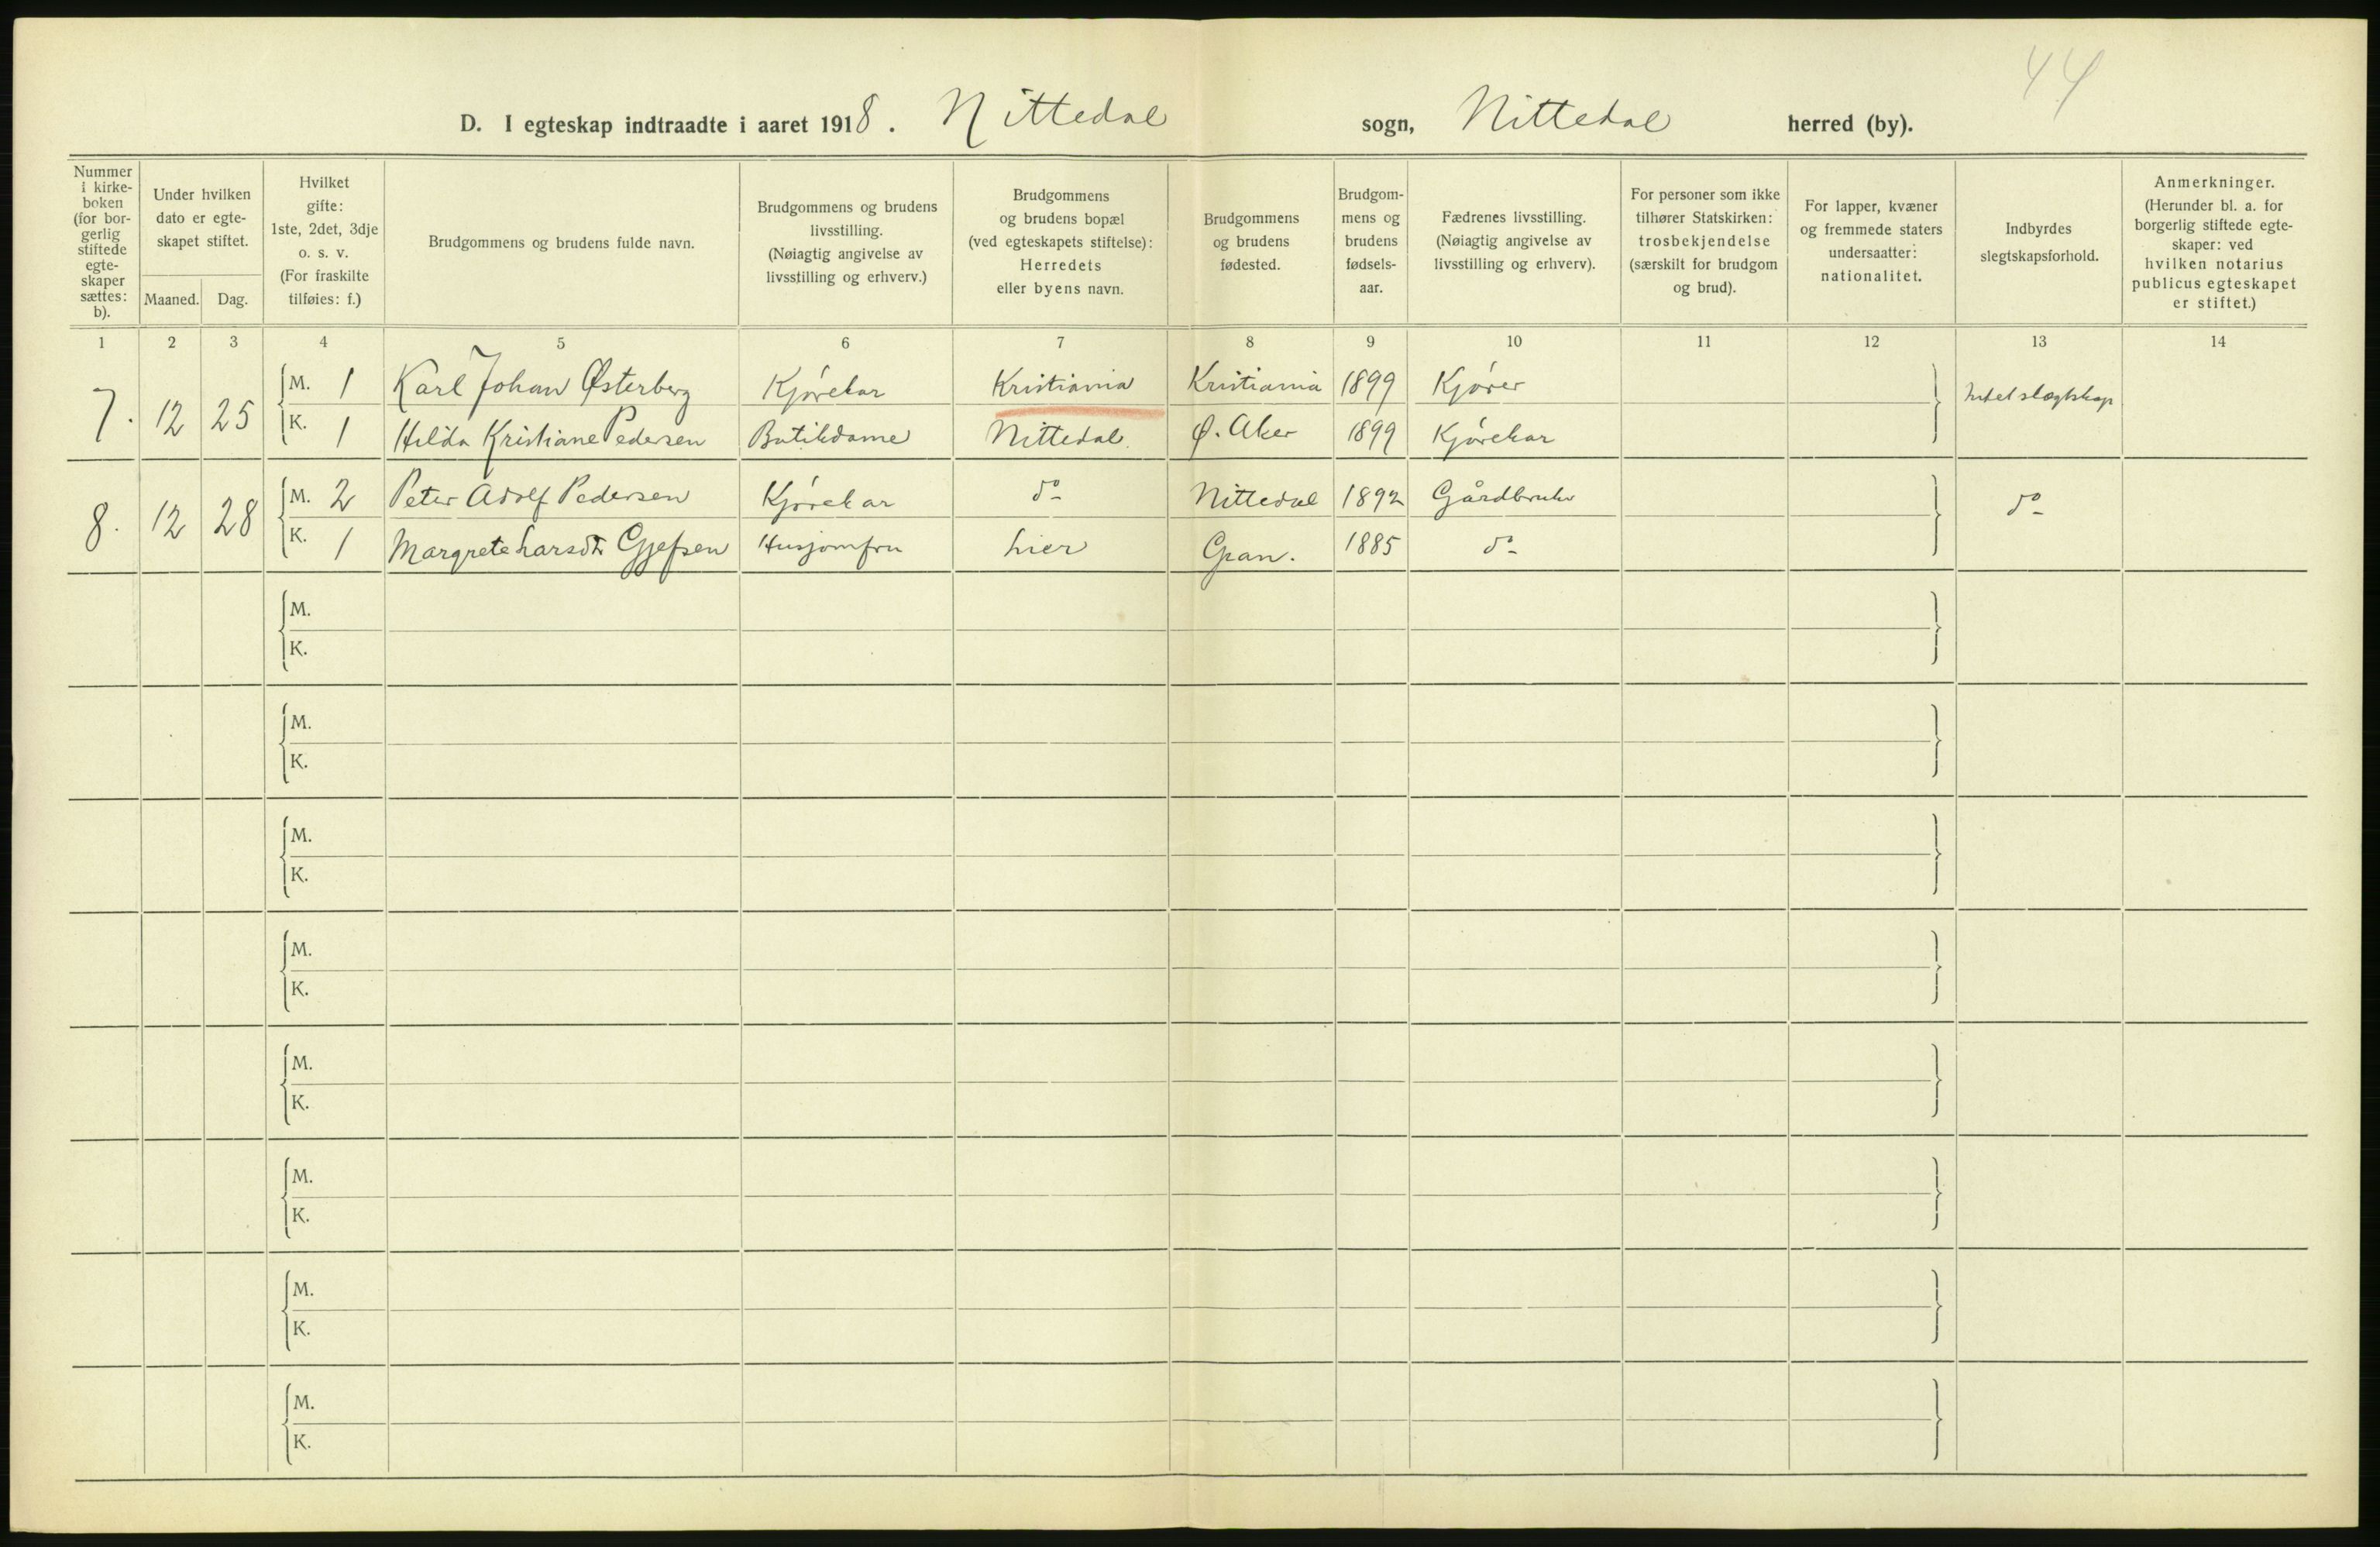 44
D. I egteskap indtraadte i aaret 1918. Nittedal sogn, Nittedal herred (by).
Nummer i kirke-boken (for bor-gerlig stiftede egte-skaper sættes: b).
Under hvilken dato er egte-skapet stiftet.
Maaned. Dag.
Hvilket gifte: 1ste, 2det, 3dje o. s. v. (For fraskilte tilføies: f.)
Brudgommens og brudens fulde navn.
Brudgommens og brudens livsstilling. (Nøiagtig angivelse av livsstilling og erhverv.)
Brudgommens og brudens bopæl (ved egteskapets stiftelse): Herredets eller byens navn.
Brudgommens og brudens fødested.
Brudgom-mens og brudens fødsels-aar.
Fædrenes livsstilling. (Nøiagtig angivelse av livsstilling og erhverv).
For personer som ikke tilhører Statskirken: trosbekjendelse (særskilt for brudgom og brud).
For lapper, kvæner og fremmede staters undersaatter: nationalitet.
Indbyrdes slegtskapsforhold.
Anmerkninger. (Herunder bl. a. for borgerlig stiftede egte-skaper: ved hvilken notarius publicus egteskapet er stiftet.)
1 2 3 4 5 6 7 8 9 10 11 12 13 14
7. 12 25 M. 1 Karl Johan Østerberg Kjørekar Kristiania Kristiania 1899 Kjører Intet slægtskap
K. 1 Hilda Kristiane Pedersen Butikdame Nittedal. Ø. Aker 1899 Kjørekar
8. 12 28 M. 2 Peter Adolf Pedersen Kjørekar do Nittedal 1892 Gårdbruker do
K. 1 Margrete Larsdtr Gjefsen Husjomfru Lier Gran. 1885 do
M.
K.
M.
K.
M.
K.
M.
K.
M.
K.
M.
K.
M.
K.
M.
K.